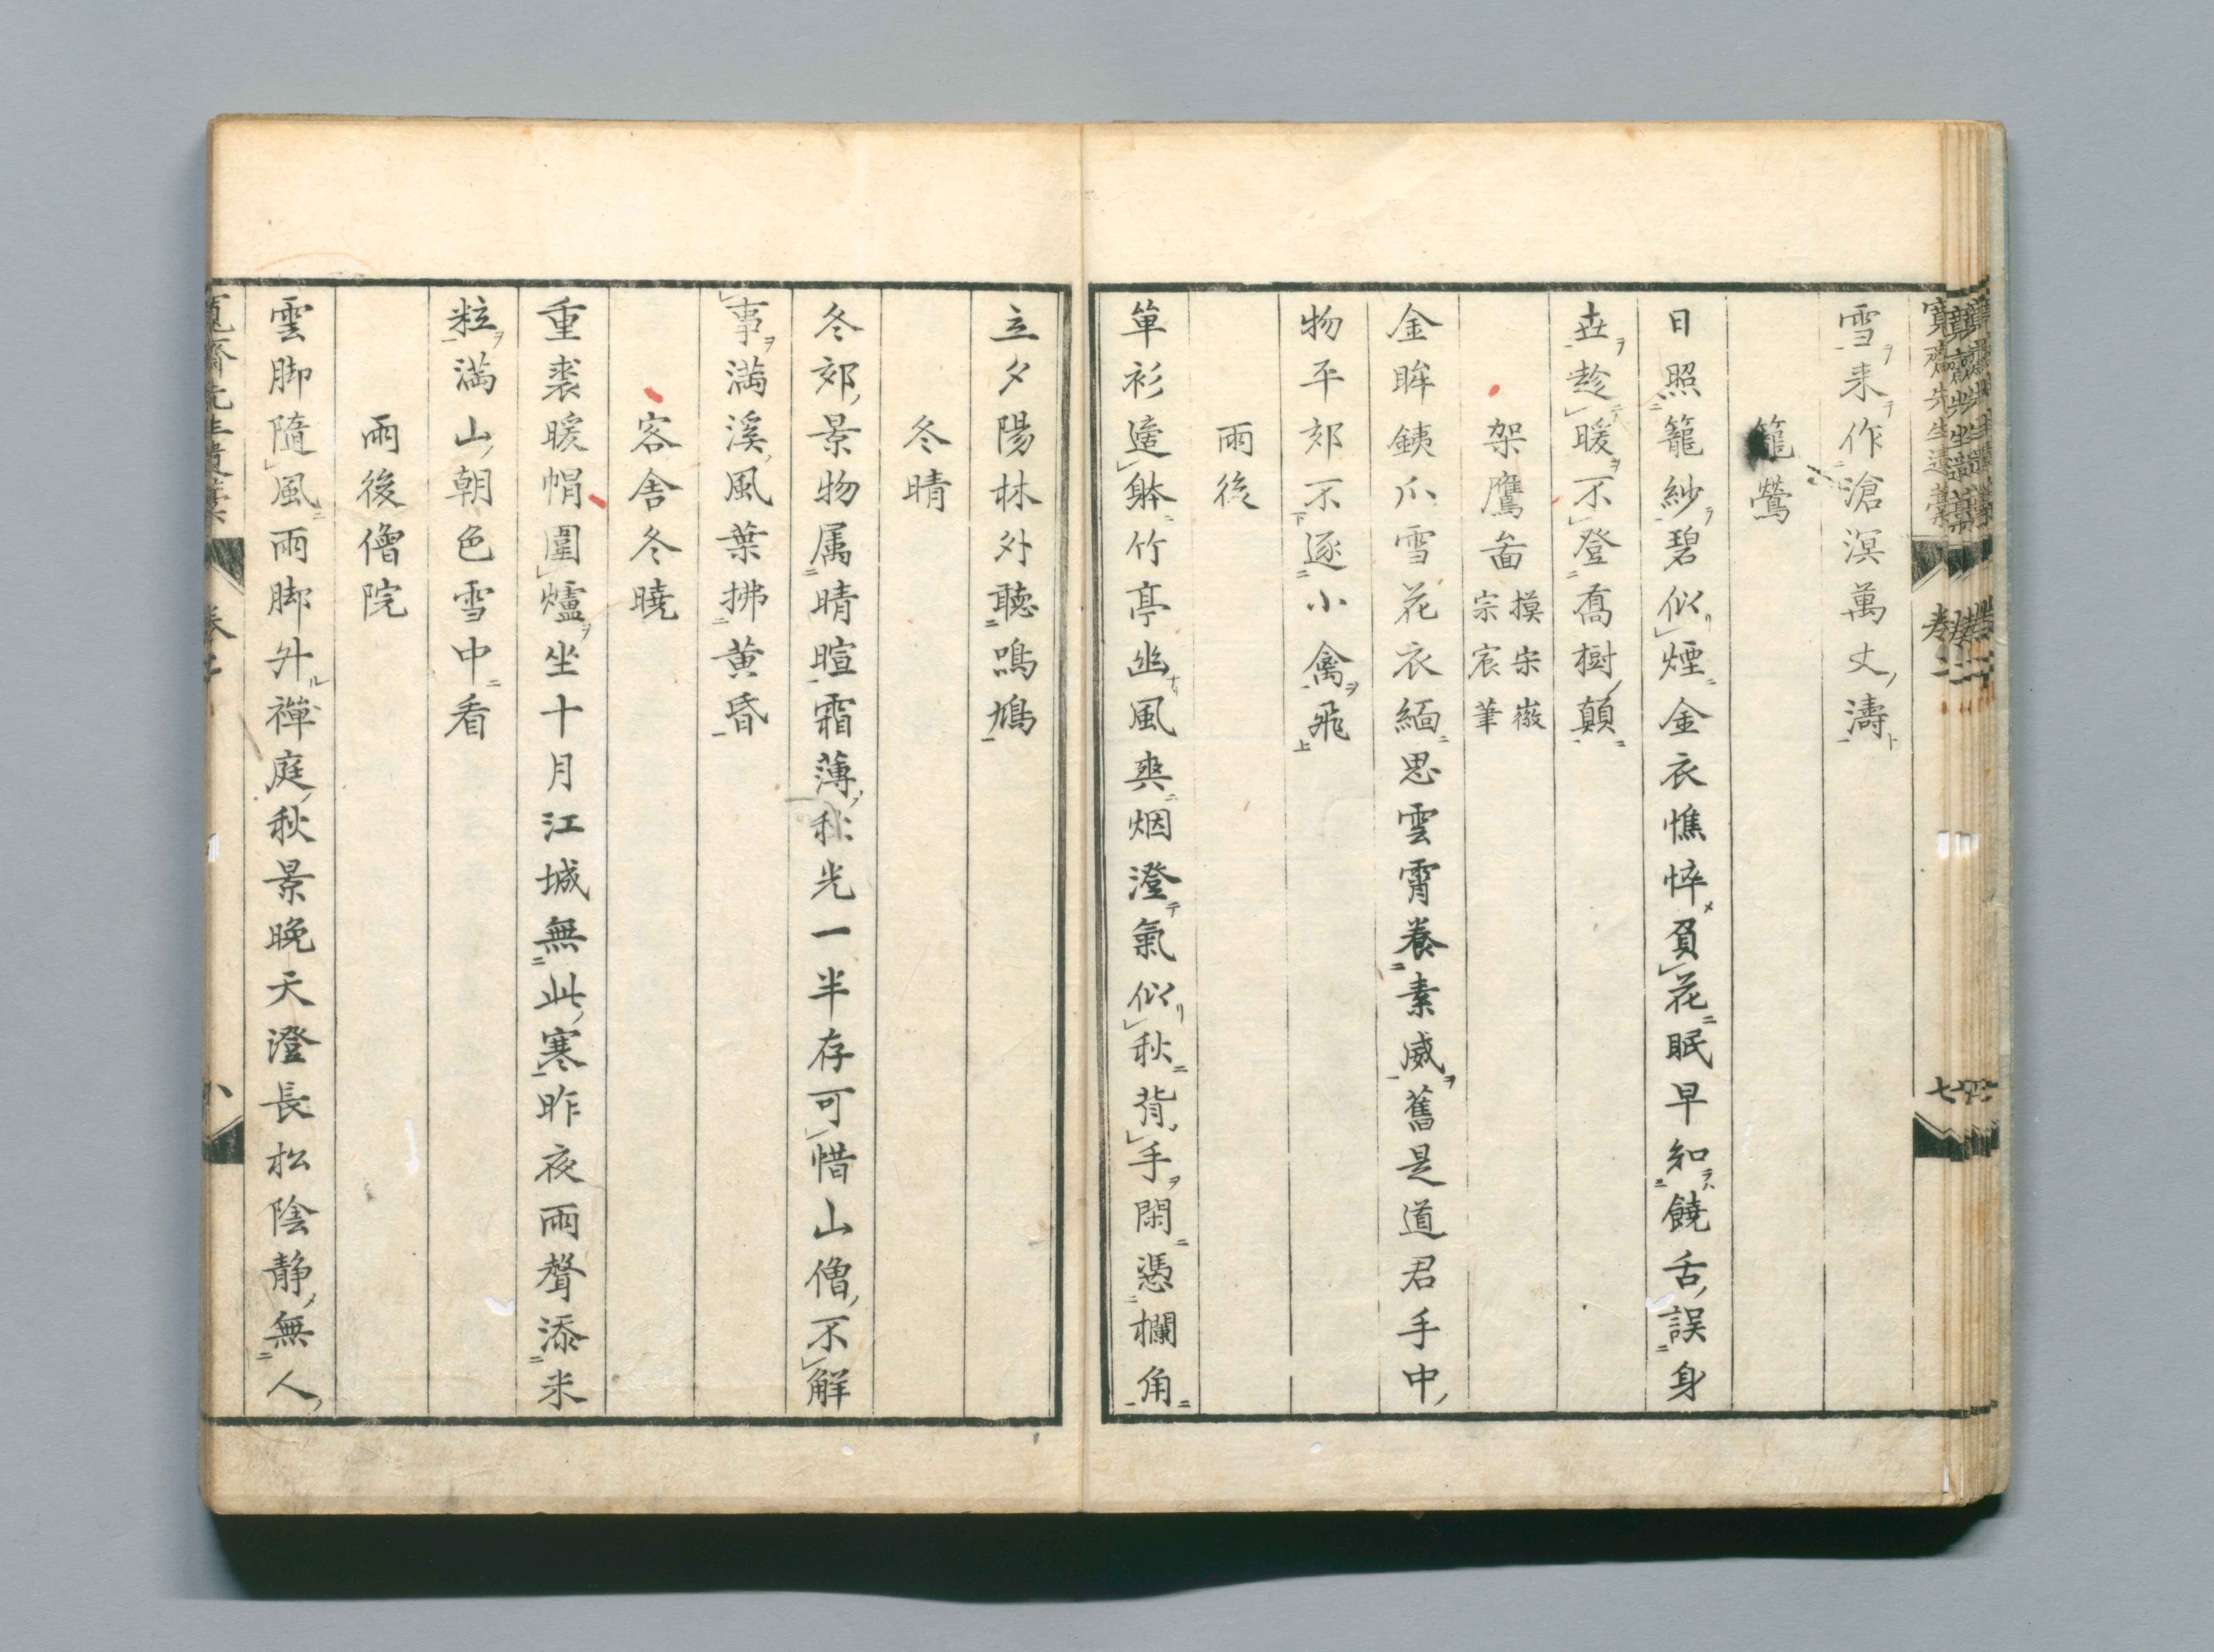 雪来作滄溟萬丈濤
籠鶯
日照籠紗碧似煙金衣憔悴負花眠早知饒舌誤身
𠀍趁暖不登喬樹顛
架鷹啚 摸宋徽
宗宸筆
金眸銕爪雪花衣緬思雲霄養素威舊是道君手中
物平郊不逐小禽飛
雨後
単衫適躰竹亭幽風爽烟澄氣似秋背手閑憑欄角
立夕陽林外聴鳴鳩
冬晴
冬郊景物属晴暄霜薄秋光一半存可惜山僧不解
事満溪風葉拂黄昏
客舎冬曉
重裘暖帽圍爐坐十月江城無此寒昨夜雨聲添米
粒満山朝色雪中看
雨後僧院
雲脚隨風雨脚外禅庭秋景晩天澄長松陰静無人